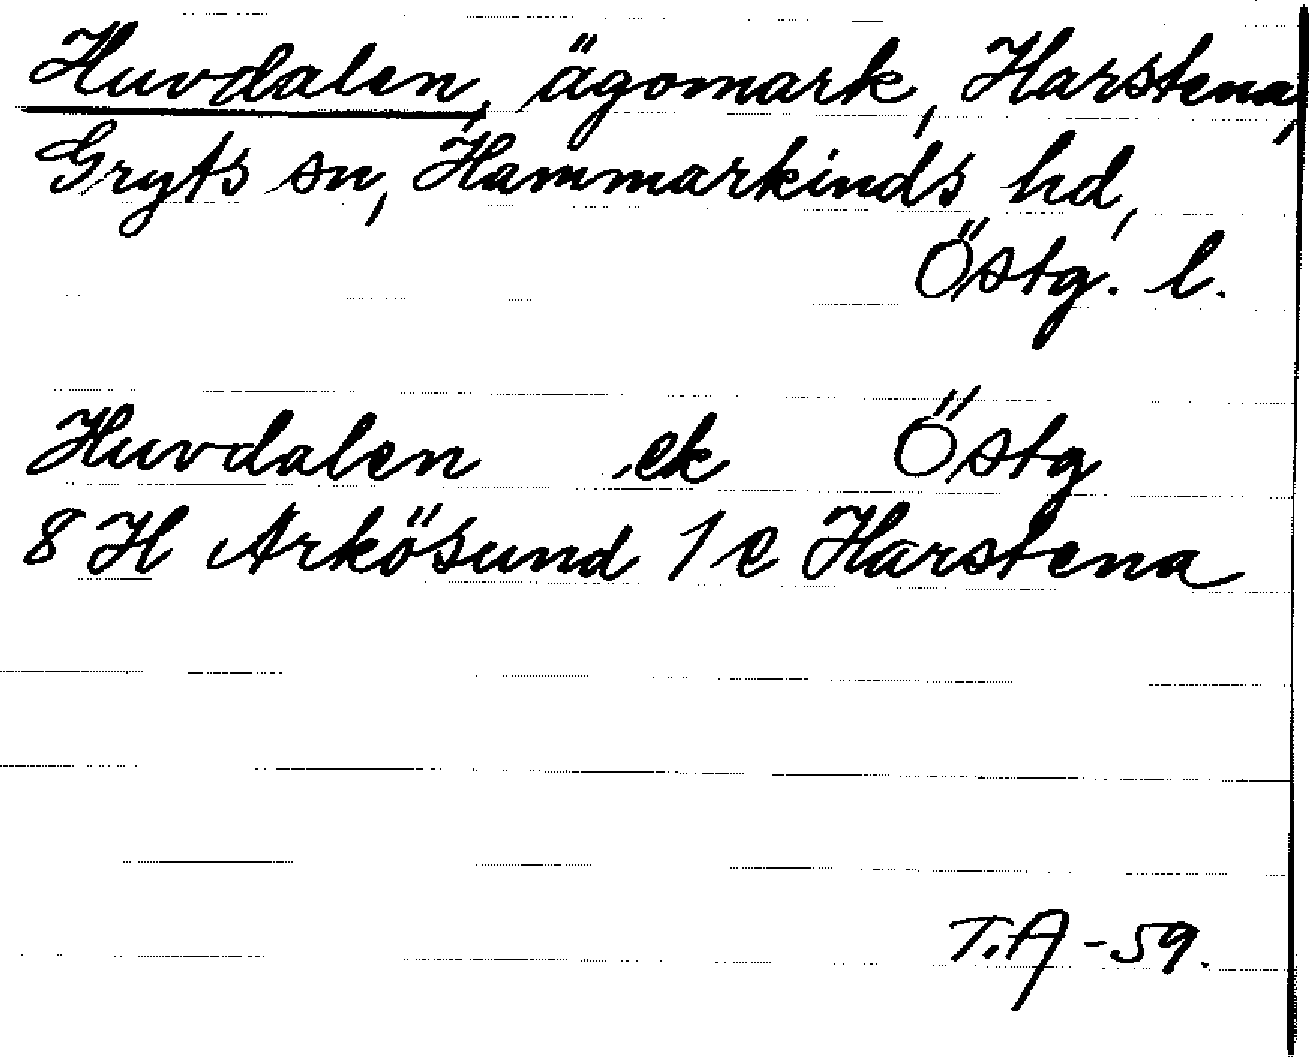 Huvdalen, ägomark, Harstena,
Gryts sn, Hammarkinds hd,
Östg. l.
Huvdalen ek Östg
8 H Arkösund 1 e Harstena
T.A -59.